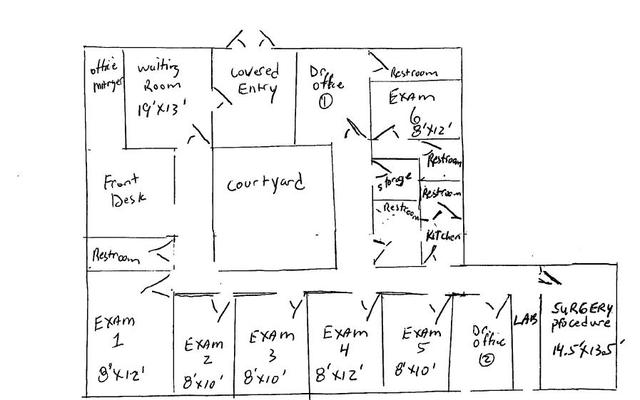 office
manger
waiting
Room
19'X13'
covered
Entry
Dr.
office
1
Restroom
EXAM
6
8'X12'
Restroom
Storage
Restroom
Restroom
Kitchen
Front
Desk
courtyard
Restroom
EXAM
1
8'X12'
EXAM
2
8'X10'
EXAM
3
8'X10'
EXAM
4
8'X12'
EXAM
5
8'X10'
Dr.
office
2
LAB
SURGERY
procedure
14.5'X13.5'